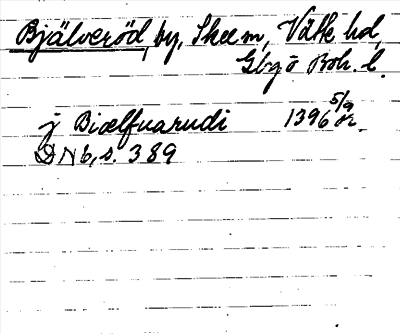 Bjälveröd, by, Skee sn, Vätte hd,
Gbg o Boh. l.
j Biælfuarudi 1396 5/9 or.
DN 6, s. 389